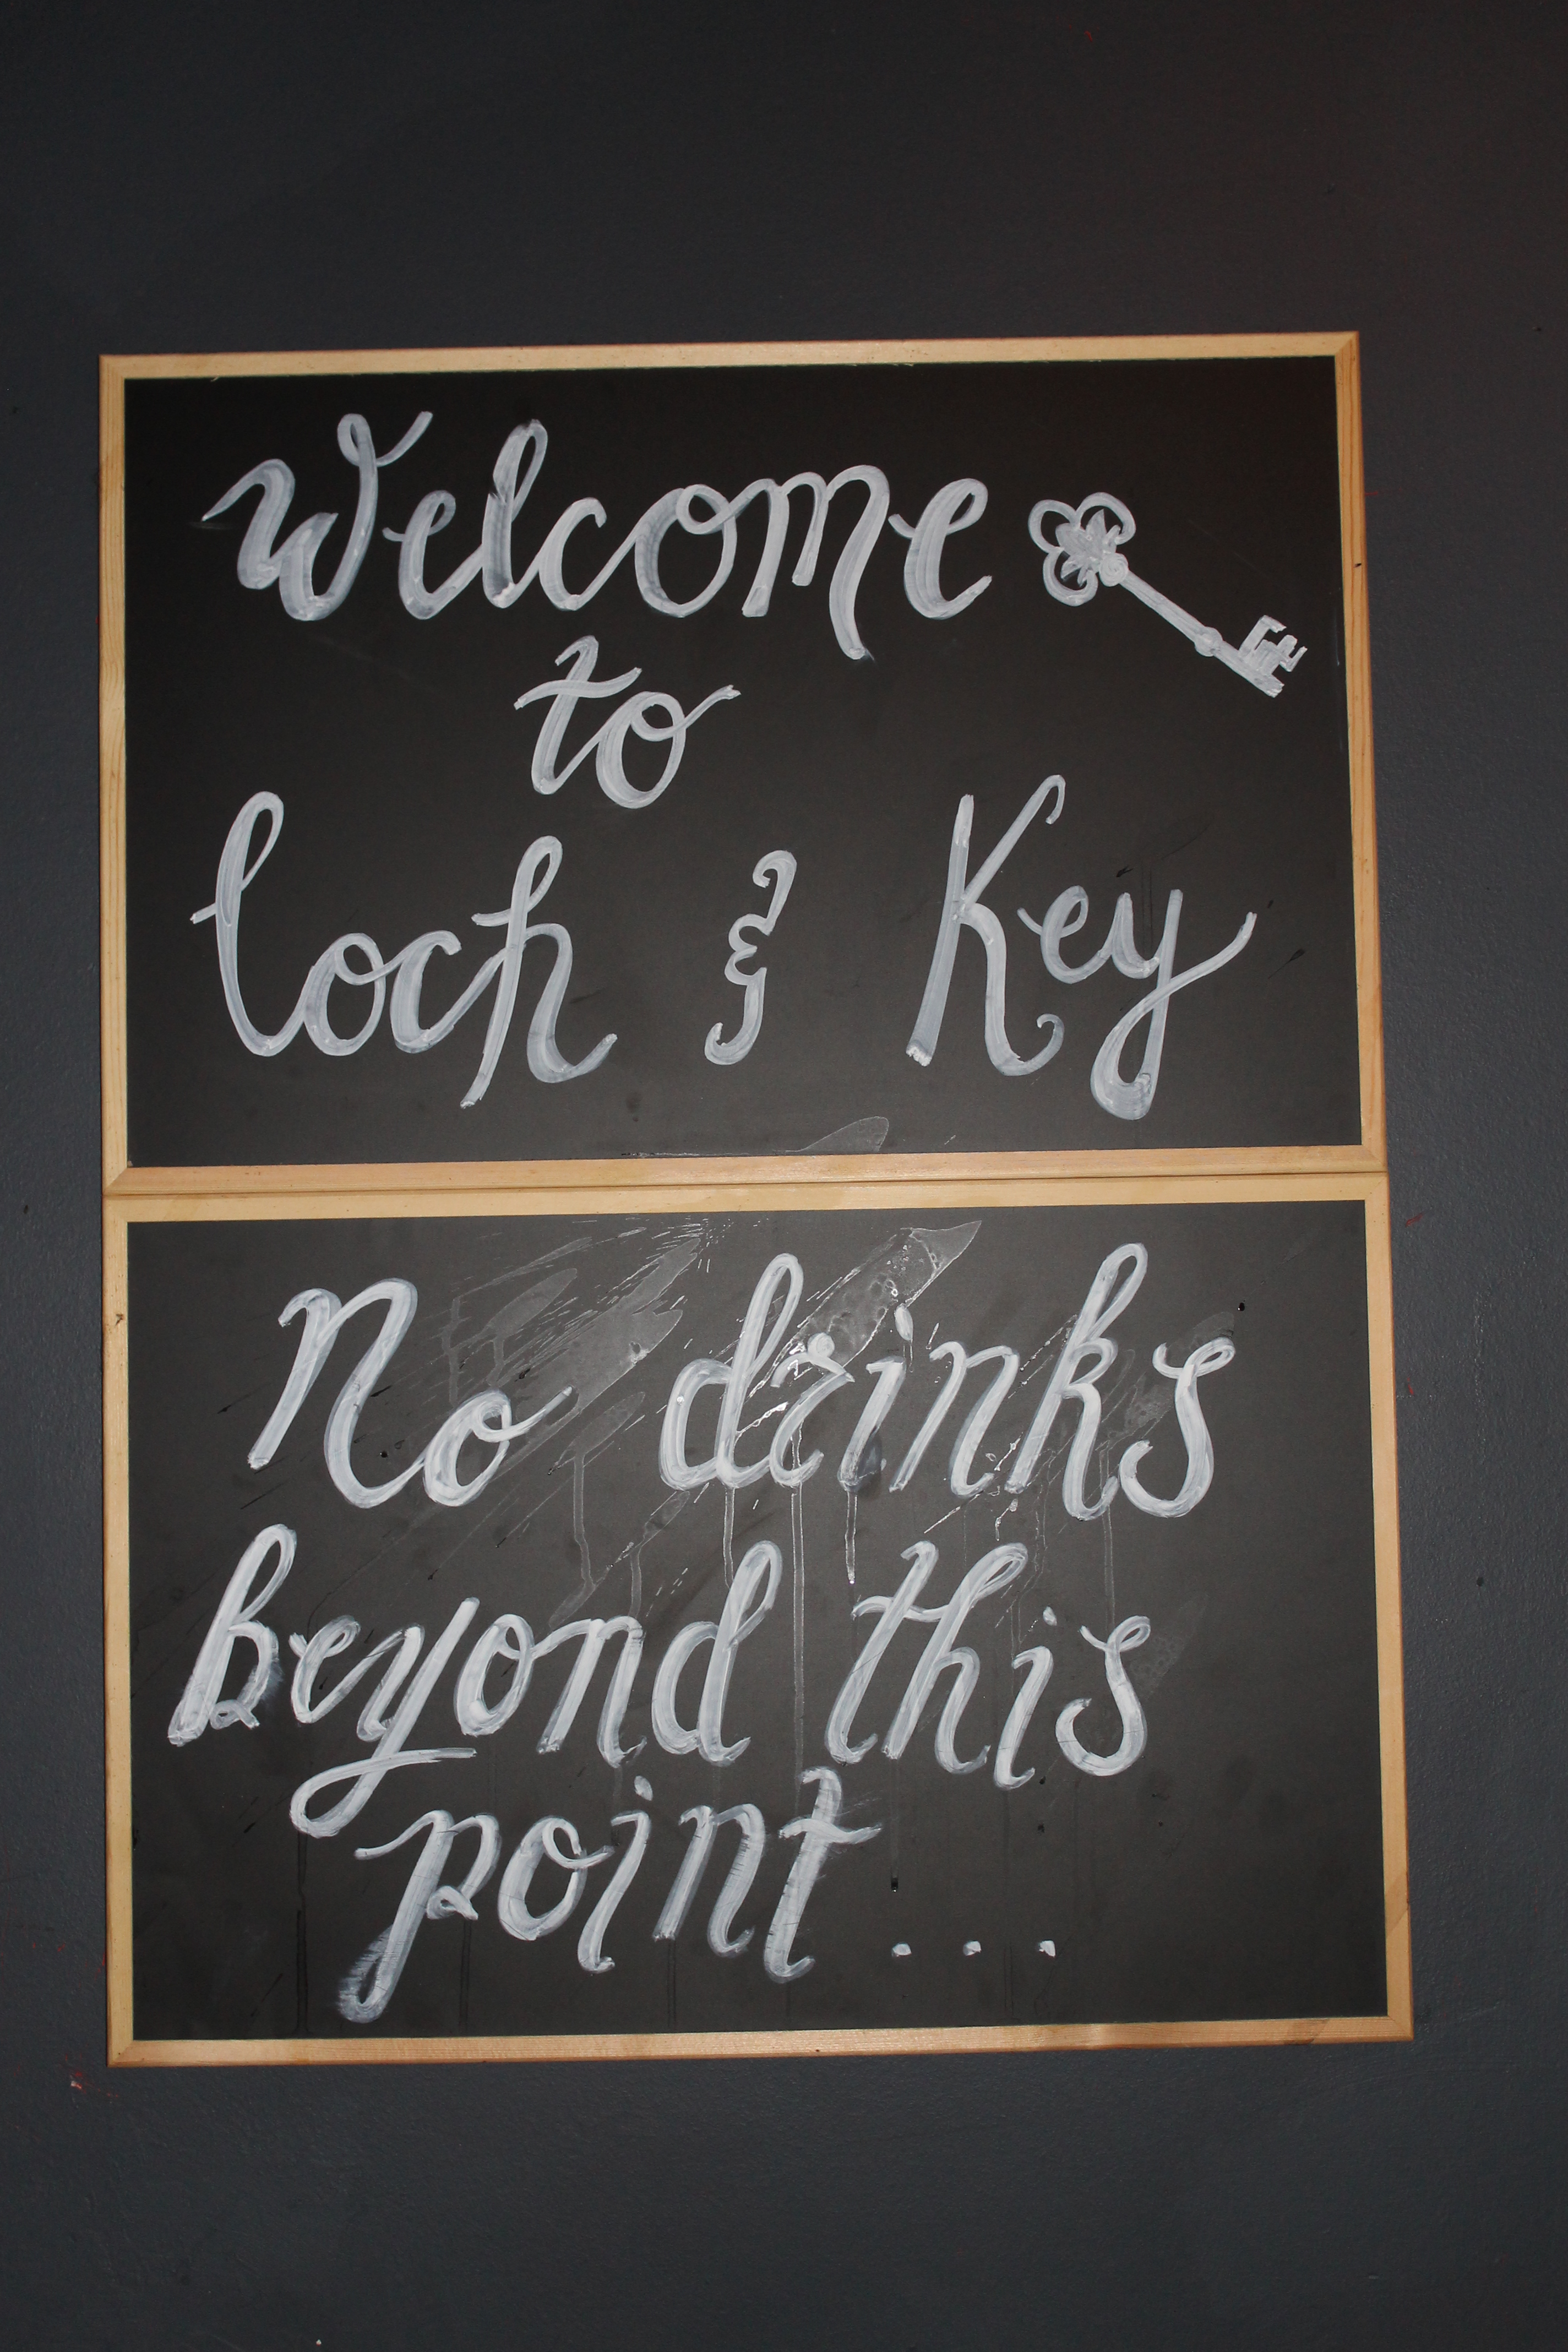 Welcome
to
loch & Key
No drinks
beyond this
point...